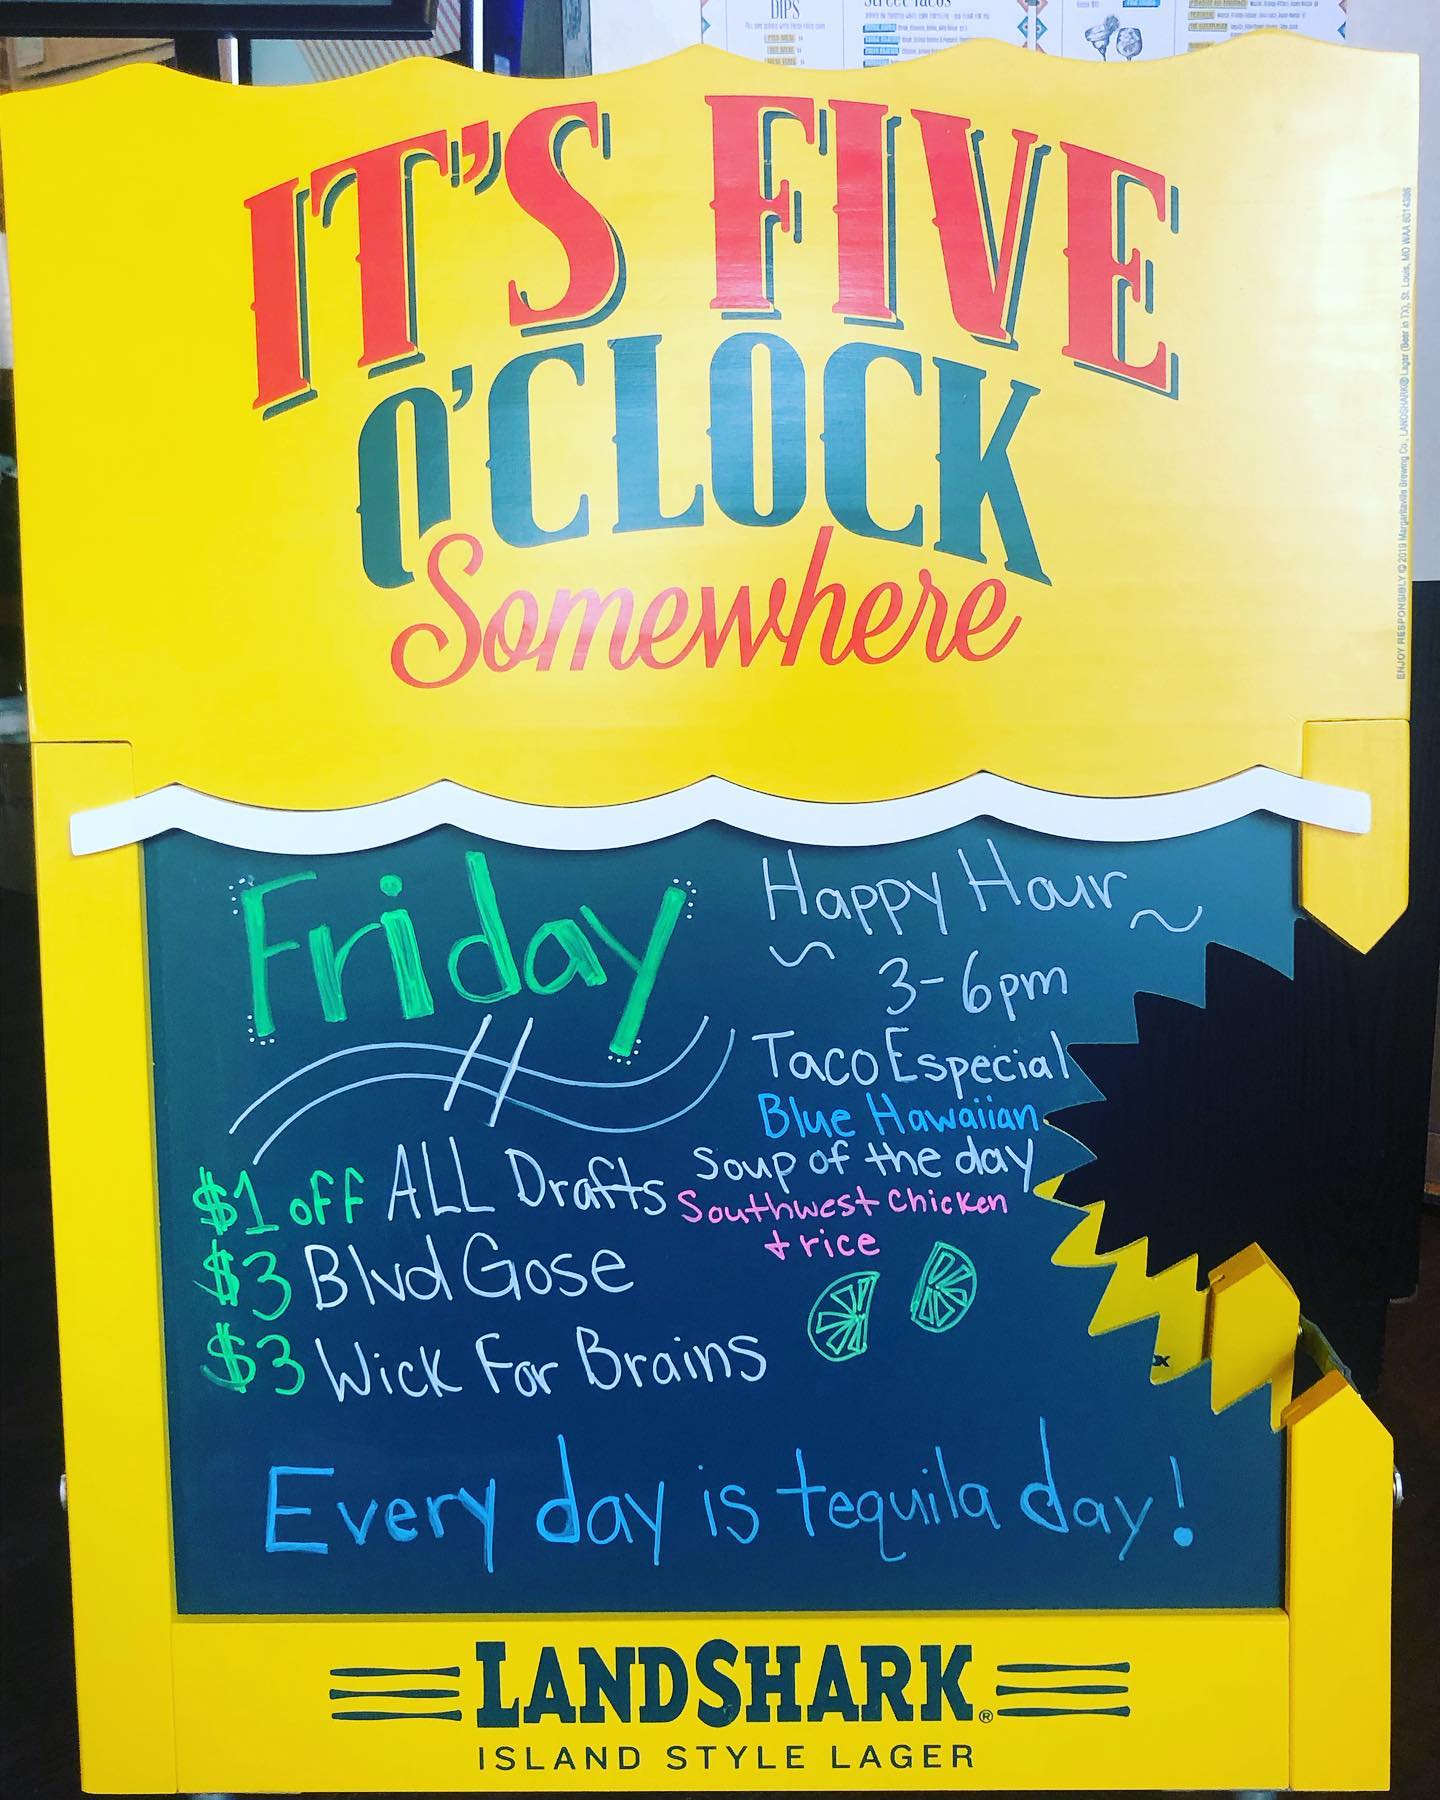 DIPS
Street Tacos
IT'S FIVE
O'CLOCK
Somewhere
ENJOY RESPONSIBLY © 2019 Margaritaville Brewing Co., LANDSHARK® Lager (Beer in TX), St. Louis, MO
Friday
Happy Hour
3-6pm
Taco Especial
Blue Hawaiian
Soup of the day
Southwest Chicken
+ rice
$1 off ALL Drafts
$3 Blvd Gose
$3 Wick For Brains
Every day is tequila day!
LANDSHARK®
ISLAND STYLE LAGER